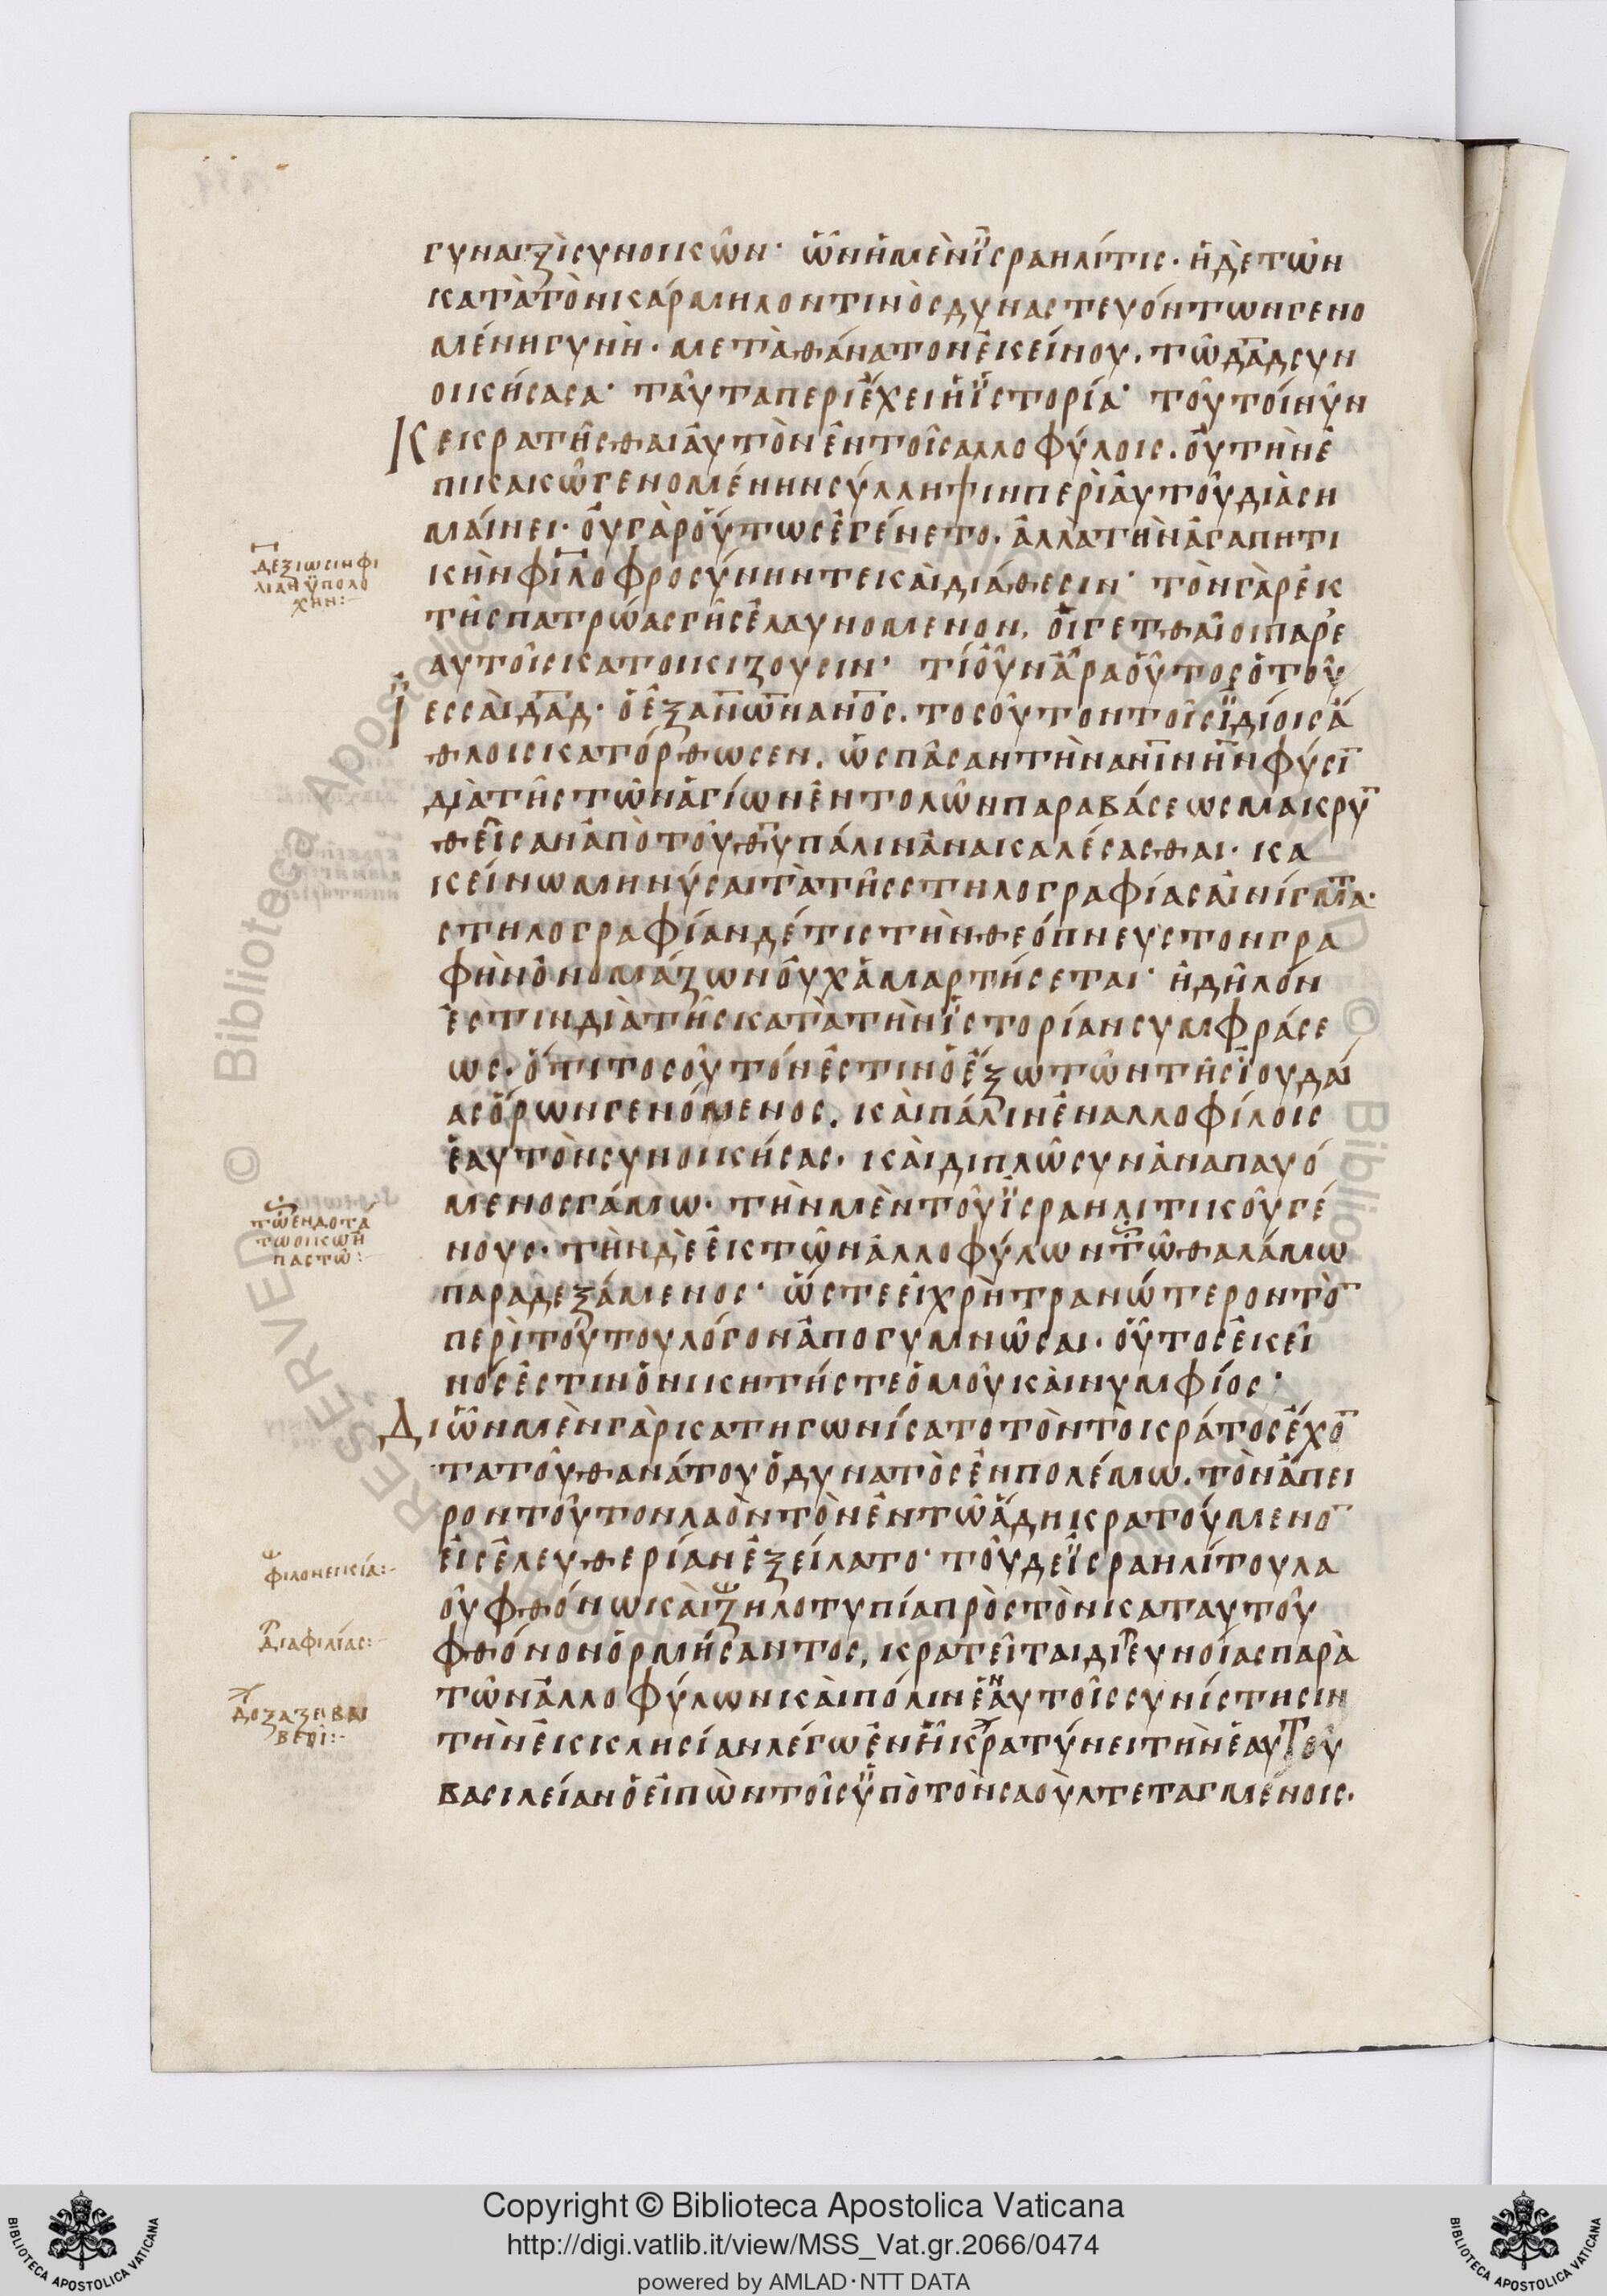 γυναιξὶ συνοικῶν· ὧν ἡ μὲν ἰσραηλίτις· ἡ δὲ τῶν
κατὰ τὸν κάρμηλον τινὸς δυναστευόντων γενο
μένη γυνὴ· μετὰ θάνατον ἐκείνου, τῶ δᾱδ συν
οικήσασα· ταῦτα περιέχει ἡ ἱστορία· τοῦ τοίνυν
κεκρατῆσθαι αὐτὸν ἐν τοῖς αλλοφύλοις. οὐ τὴν ἐ
πι κακῶ γενομένην σύλληψιν περὶ αὐτοῦ διὰ ση
μαίνει· οὐ γὰρ οὕτως ἐγένετο. ἀλλὰ τὴν ἀγαπητι
κὴν φιλοφροσύνην τε καὶ διάθεσιν· τὸν γὰρ ἐκ
τῆς πατρώας γῆς ἐλαυνόμενον, οἱ γετθαῖοι παρ ε
αυτοῖς κατοικίζουσιν· τί οὖν ἄρα οὗτος ὁ τοῦ
ϊεσσαὶ δᾱδ· ὁ ἐξ ανων ανος. τοσοῦτον τοῖς ἰδίοις ἄ
θλοις κατόρθωσεν. ὡς πᾶσαν τὴν ανινην φύσι
διὰ τῆς τῶν ἁγίων ἐντολῶν παραβάσεως μακρυ
θεῖσαν ἀπὸ τοῦ θυ πάλιν ἀνακαλέσασθαι· κα
κείνω μηνύσαι τὰ τῆς στηλογραφίας αἰνίγματα·
στηλογραφίαν δέ τις τὴν θεόπνευστον γρα
φὴν ὀνομάζων οὐχ ἁμαρτήσεται· ἢ δῆλόν
ἐστιν διὰ τῆς κατὰ τὴν ἱστορίαν συμφράσε
ως. ὅτι τοσοῦτόν ἐστιν ὁ ἔξω τῶν τῆς ἰουδαί
ας ὅρων γενόμενος. καὶ πάλιν ἐν αλλοφίλοις
ἑαυτὸν συνοικήσας. καὶ διπλῶ συναναπαυό
μενος γάμω. τὴν μὲν τοῦ ἰσραηλιτικοῦ γέ
νους· τὴν δὲ ἐκ τῶν ἀλλοφύλων τῶ θαλάμω
παραδεξάμενος· ὥστε εἰ χρὴ τρανώτερον τὸ
περὶ τούτου λόγον ἀπογυμνῶσαι. οὗτος ἐκεῖ
νός ἐστιν ὁ νικητής τε ὁμοῦ καὶ νυμφίος·
Δι ὧν μὲν γὰρ κατηγωνίσατο τὸν τὸ κράτος ἔχο
τα τοῦ θανάτου ὁ δυνατὸς ἐν πολέμω. τὸν ἄπει
ρον τοῦτον λαὸν τὸν ἐν τῶ ἅδη κρατούμενο
εἰς ἐλευθερίαν ἐξείλατο· τοῦ δε ἰσραηλίτου λα
οῦ φθόνω καὶ ζηλοτυπία πρὸς τὸν κατ αυτοῦ
φθόνον ὁρμήσαντος, κρατεῖται δι ευνοίας παρὰ
τῶν ἀλλοφύλων καὶ πόλιν ἐν αυτοῖς συνίστησιν
τὴν ἐκκλησίαν λέγω ἐν ἧ κρατύνει τὴν ἑαυτοῦ
βασιλείαν ὁ εἰπὼν τοῖς ὑπὸ τὸν σαοὺλ τεταγμένοις.
δεξιωσιν φι
λιαν ϋποδο
χην:
τῶ ενδοτά
τω οικω ἢ
παστῶ:
φιλονεικία:
διαφιλίας:
Copyright © Biblioteca Apostolica Vaticana
http://digi.vatlib.it/view/MSS_Vat.gr.2066/0474
powered by AMLAD·NTT DATA
BIBLIOTECA APOSTOLICA VATICANA
BIBLIOTECA APOSTOLICA VATICANA